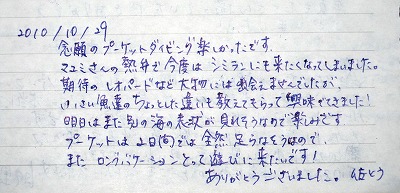 2010/10/29
念願のプーケットダイビング楽しかったです。
マユミさんの熱弁で今度はシミランにも来たくなってしまいました。
期待のレオパードなど大物には出会えませんでしたが、
小さい魚達のちょっとした違いも教えてもらって興味がでてきました!
明日はまた別の海の表状が見れそうなので楽しみです
プーケットは2日間では全然足らなそうなので、
また ロングバケーションとって遊びに来たいです!
ありがとうございました。